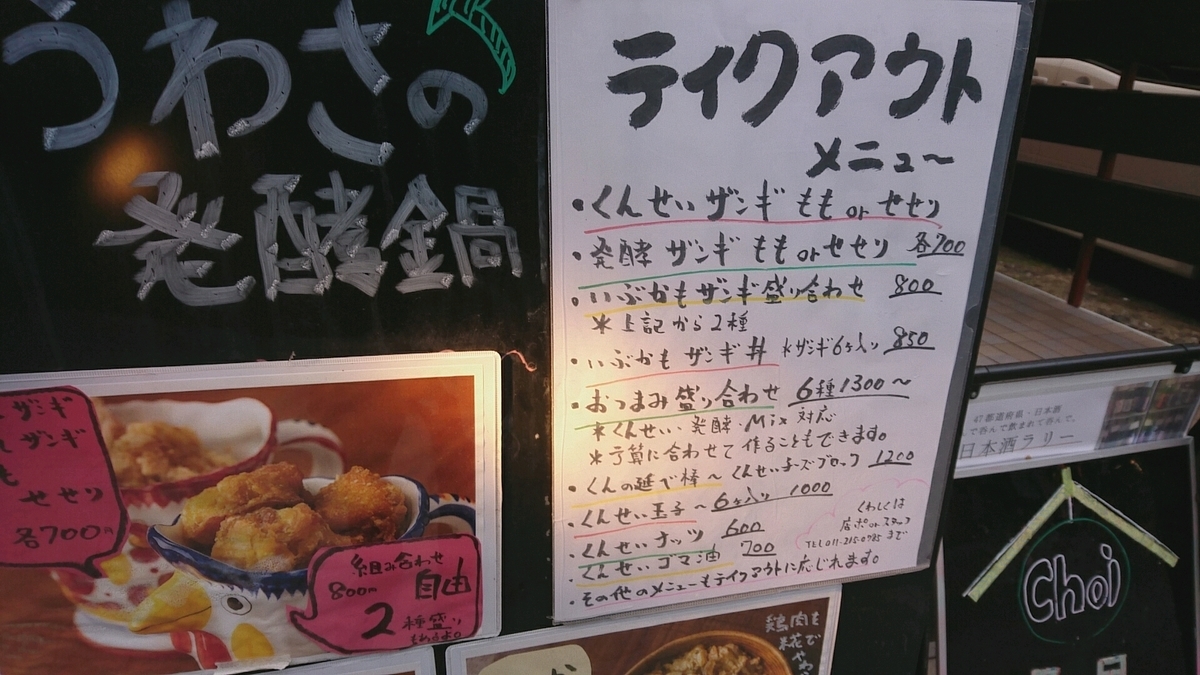 うわさの
発酵鍋
テイクアウト
メニュ〜
・くんせい ザンギ もも or せせり
・発酵 ザンギ もも or せせり 各700
・いぶかもザンギ盛り合わせ 800
＊上記から2種
・いぶかも ザンギ丼 ＊ザンギ6ヶ入り 850
・おつまみ盛り合わせ 6種1300〜
＊くんせい・発酵・Mix 対応
＊予算に合わせて作ることもできます。
・くんの延べ棒〜くんせいチーズブロック 1200
・くんせい玉子〜6ヶ入り 1000
・くんせいナッツ 600
・くんせいゴマ油 700
・その他のメニューもテイクアウトに応じれます。
くわしくは
店ポ or スタッフ
TEL 011-215-0785 まで
ザンギ
ザンギ
も
せせり
各700円
組み合わせ
800円 自由
2種盛り
もあるよ。
47都道府県・日本酒
で呑んで飲まれて呑んで、
日本酒ラリー
Choi
鶏肉を
糀で
やわ